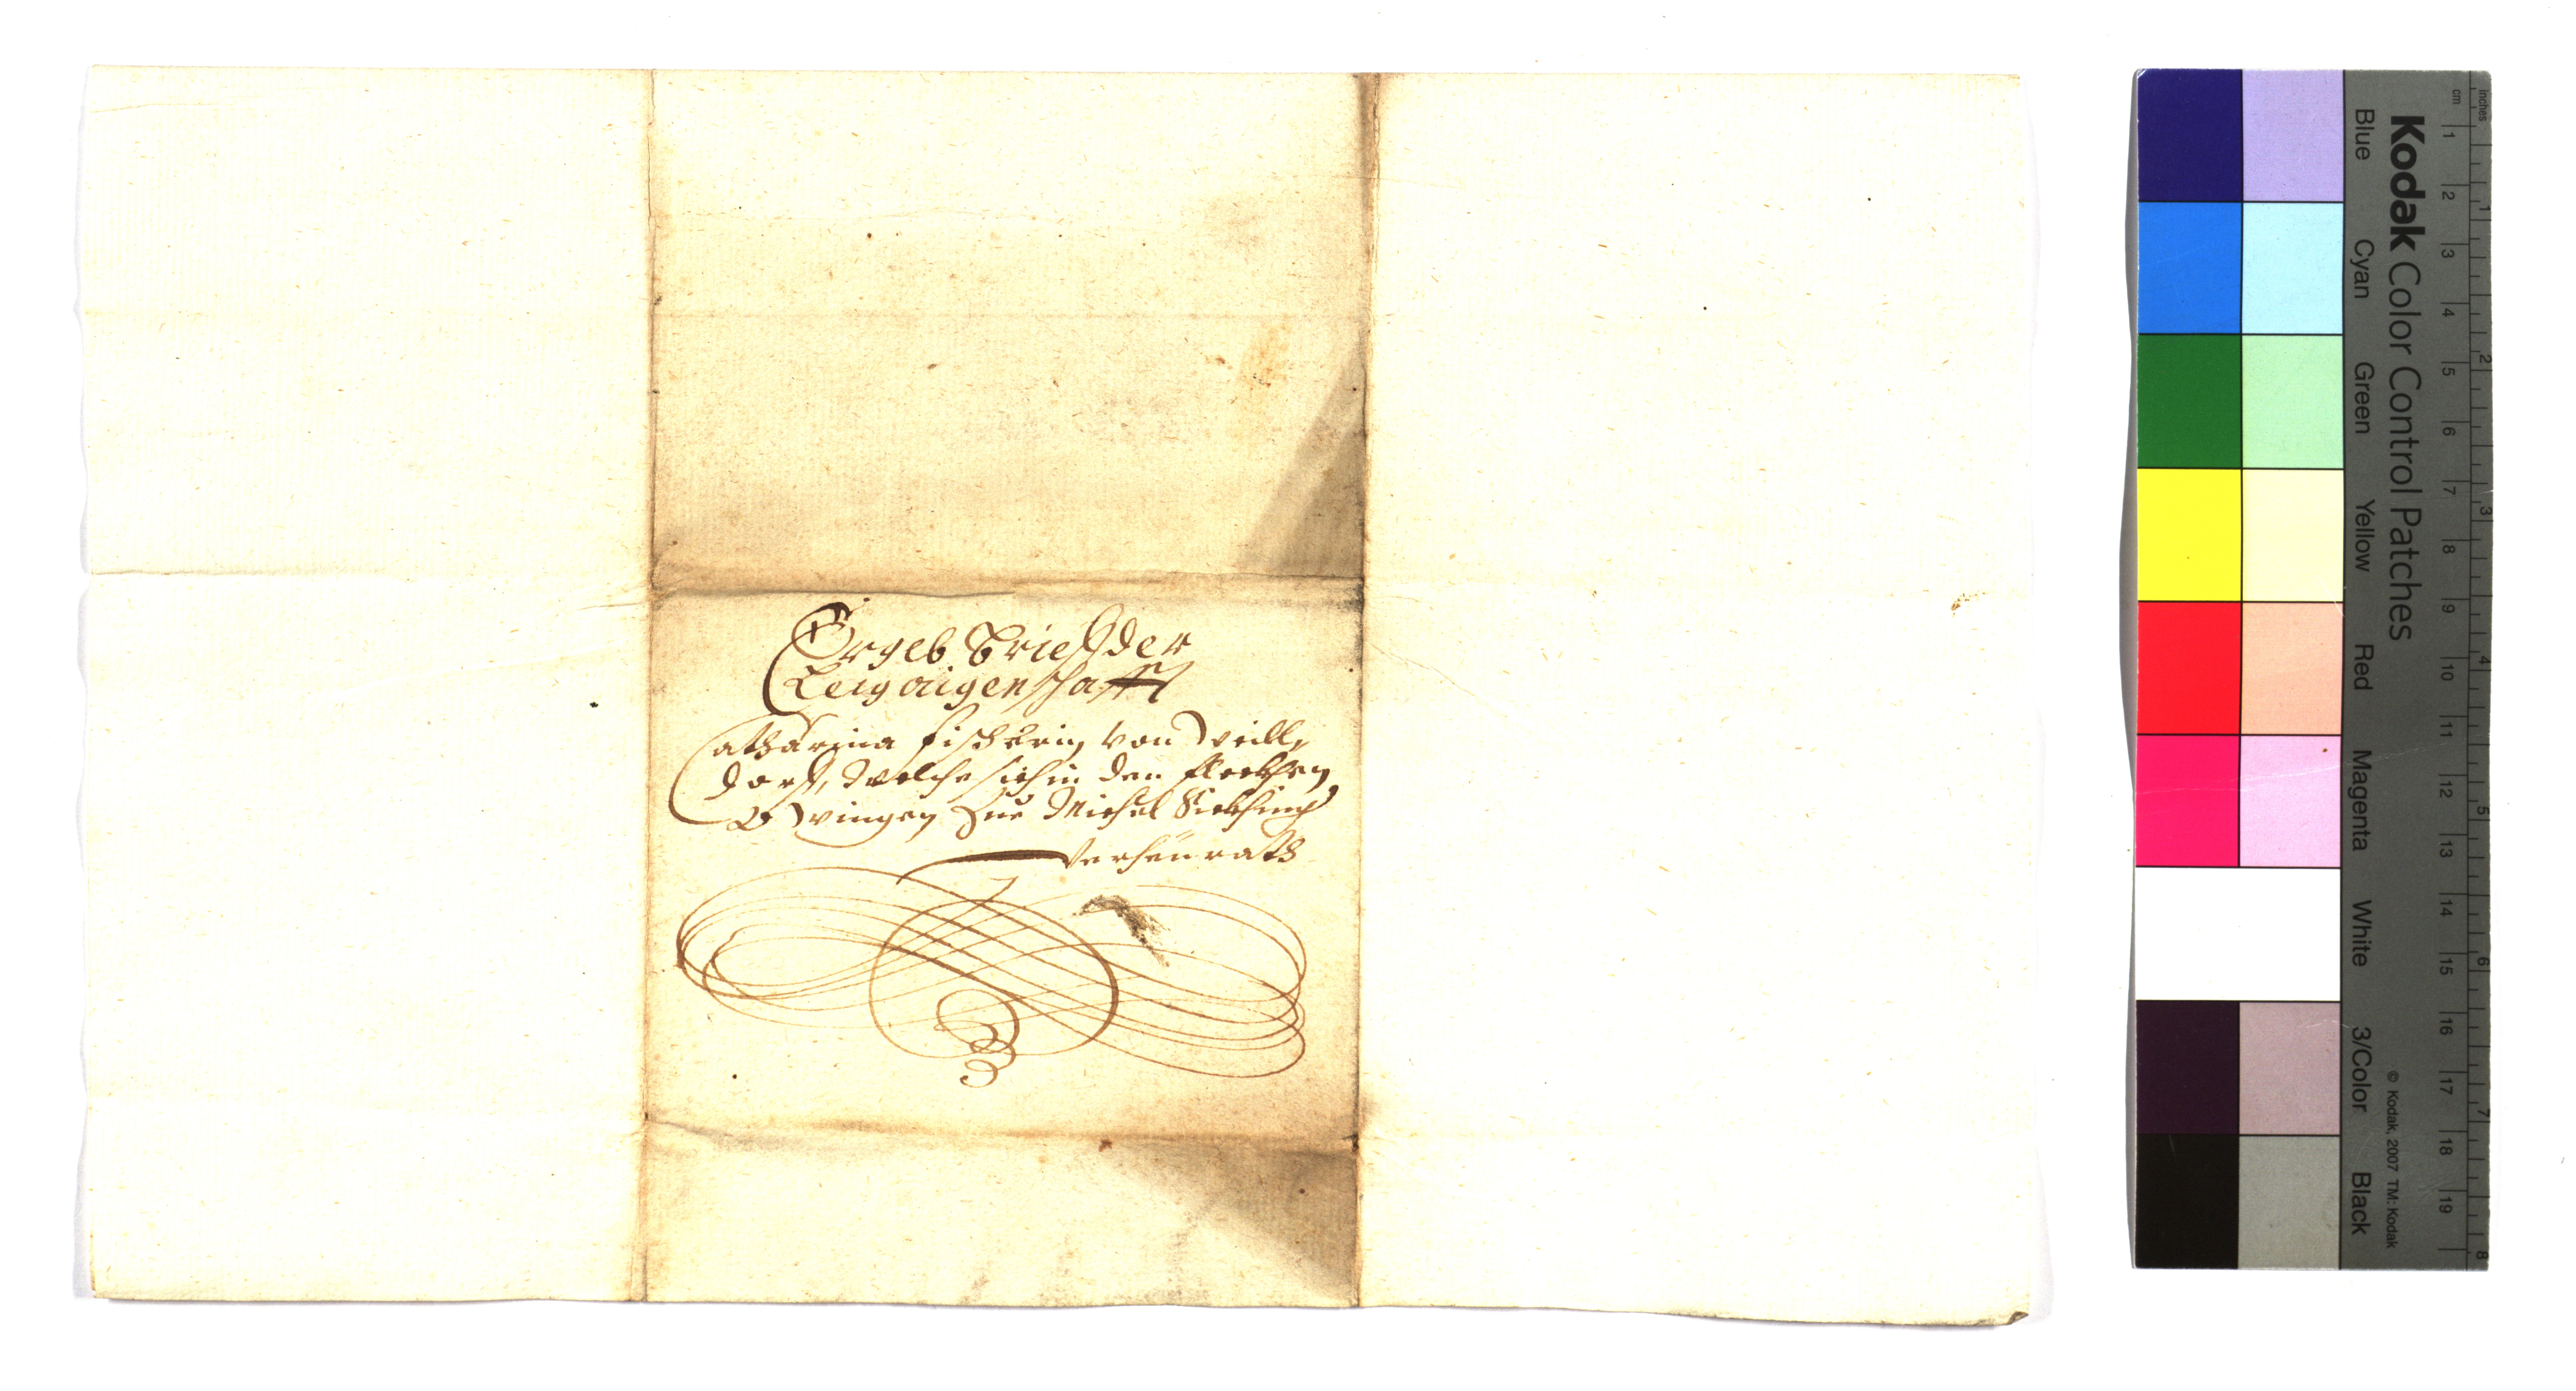 Ergeb Brieff der
Leig aigenschafft
Catharina Fischerin von Weill,
dorff, welche sich in den fleckhen
Owingen zue Michel
verheürath
Kodak Color Control Patches
Blue Cyan Green Yellow Red Magenta White 3/Color Black
© Kodak, 2007 TM: Kodak
cm 1 2 3 4 5 6 7 8 9 10 11 12 13 14 15 16 17 18 19
inches 1 2 3 4 5 6 7 8